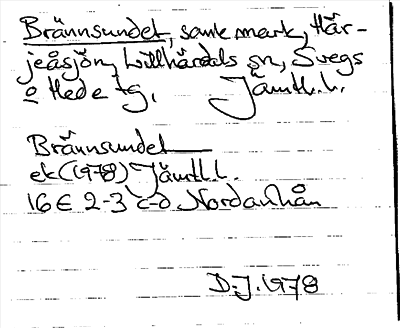 Brännsundet, sank mark, Här-
jeåsjön, Lillhärdals sn, Svegs
o Hede tg, Jämtl. l.
Brännsundet
ek (1978) Jämtl. l.
16 E 2-3 c-d Nordanhån
D.J. 1978